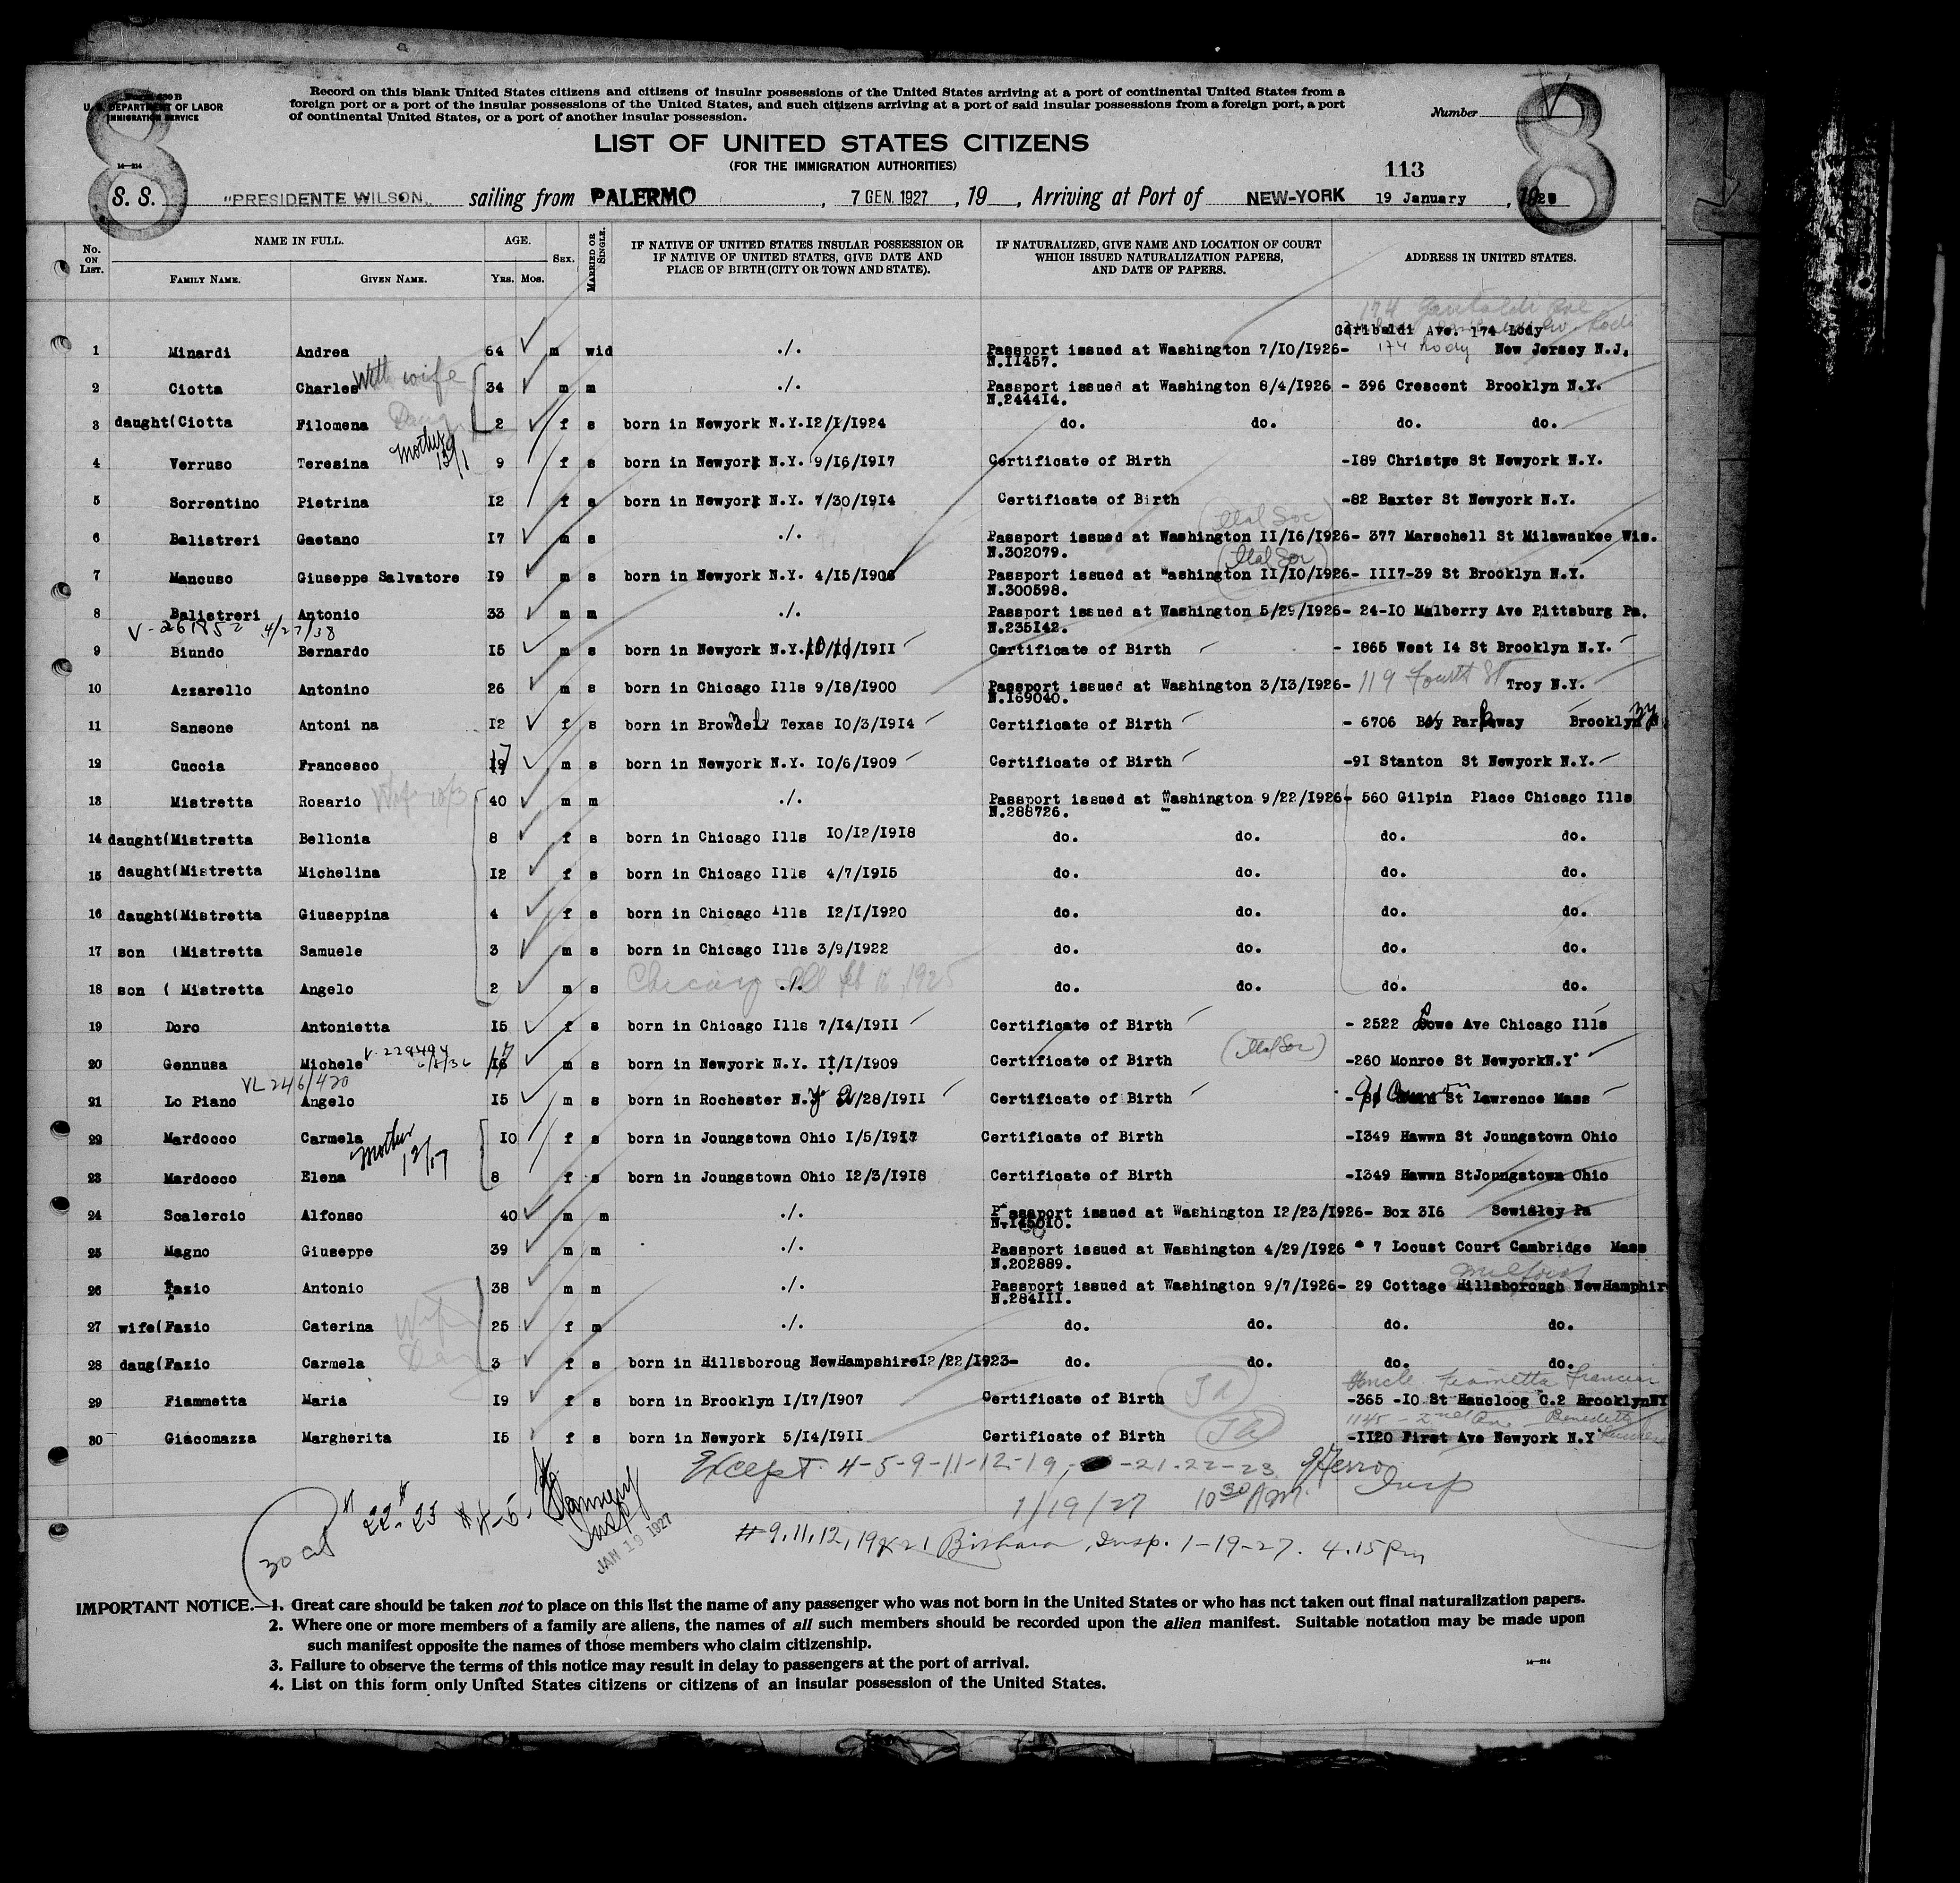 8
Form 630 B
U. S. DEPARTMENT OF LABOR
IMMIGRATION SERVICE
14—214
Record on this blank United States citizens and citizens of insular possessions of the United States arriving at a port of continental United States from a
foreign port or a port of the insular possessions of the United States, and such citizens arriving at a port of said insular possessions from a foreign port, a port
of continental United States, or a port of another insular possession.
Number
8
LIST OF UNITED STATES CITIZENS
(FOR THE IMMIGRATION AUTHORITIES)
113
S. S. "PRESIDENTE WILSON" sailing from PALERMO , 7 GEN. 1927 , 19 , Arriving at Port of NEW-YORK 19 January , 192
No. ON LIST. NAME IN FULL. AGE. SEX. MARRIED OR SINGLE. IF NATIVE OF UNITED STATES INSULAR POSSESSION OR IF NATIVE OF UNITED STATES, GIVE DATE AND PLACE OF BIRTH (CITY OR TOWN AND STATE). IF NATURALIZED, GIVE NAME AND LOCATION OF COURT WHICH ISSUED NATURALIZATION PAPERS, AND DATE OF PAPERS. ADDRESS IN UNITED STATES.
FAMILY NAME. GIVEN NAME. YRS. MOS.
174 Garibaldi Ave
Garibaldi Ave. 174 Lody
1 Minardi Andrea 64 m wid ./. Passport issued at Washington 7/10/1926- 174 Lody New Jersey N.J.
N.11457.
2 Ciotta Charles With wife 34 m m ./. Passport issued at Washington 8/4/1926 - 396 Crescent Brooklyn N.Y.
N.244414.
3 daught(Ciotta Filomena Daug 2 f s born in Newyork N.Y.12/1/1924 do. do. do. do.
4 Verruso Teresina Mother 9 f s born in Newyork N.Y. 9/16/1917 Certificate of Birth -189 Christge St Newyork N.Y.
5 Sorrentino Pietrina 12 f s born in Newyork N.Y. 7/30/1914 Certificate of Birth -82 Baxter St Newyork N.Y.
(Ital Soc)
6 Balistreri Gaetano 17 m s ./. Passport issued at Washington 11/16/1926- 377 Marschell St Milawaukee Wis.
N.302079. (Ital Soc)
7 Mancuso Giuseppe Salvatore 19 m s born in Newyork N.Y. 4/15/1908 Passport issued at Washington 11/10/1926- 1117-39 St Brooklyn N.Y.
N.300598.
8 Balistreri Antonio 33 m m ./. Passport issued at Washington 5/29/1926- 24-10 Mulberry Ave Pittsburg Pa.
V-261852 4/27/38 N.235142.
9 Biundo Bernardo 15 m s born in Newyork N.Y.10/10/1911 Certificate of Birth - 1865 West 14 St Brooklyn N.Y.
10 Azzarello Antonino 26 m s born in Chicago Ills 9/18/1900 Passport issued at Washington 3/13/1926- 119 Fourth St Troy N.Y.
N.169040.
11 Sansone Antoni na 12 f s born in Browdell Texas 10/3/1914 Certificate of Birth - 6706 Bay Parkway Brooklyn NY
12 Cuccia Francesco 17 m s born in Newyork N.Y. 10/6/1909 Certificate of Birth -91 Stanton St Newyork N.Y.
13 Mistretta Rosario Wife 40 m m ./. Passport issued at Washington 9/22/1926- 560 Gilpin Place Chicago Ills
N.288726.
14 daught(Mistretta Bellonia 8 f s born in Chicago Ills 10/12/1918 do. do. do. do.
15 daught(Mistretta Michelina 12 f s born in Chicago Ills 4/7/1915 do. do. do. do.
16 daught(Mistretta Giuseppina 4 f s born in Chicago Ills 12/1/1920 do. do. do. do.
17 son (Mistretta Samuele 3 m s born in Chicago Ills 3/9/1922 do. do. do. do.
18 son ( Mistretta Angelo 2 m s ./. Chicago Ill Feb 1925 do. do. do. do.
19 Doro Antonietta 15 f s born in Chicago Ills 7/14/1911 Certificate of Birth - 2522 Lowe Ave Chicago Ills
20 Gennusa Michele V-229494 6/8/36 17 m s born in Newyork N.Y. 11/1/1909 Certificate of Birth (Ital Soc) -260 Monroe St NewyorkN.Y
VL 246/420
21 Lo Piano Angelo 15 m s born in Rochester N.Y. 2/28/1911 Certificate of Birth St Lawrence Mass
22 Mardocco Carmela 10 f s born in Joungstown Ohio 1/5/1917 Certificate of Birth -1349 Hawwn St Joungstown Ohio
Mother 12/17
23 Mardocco Elena 8 f s born in Joungstown Ohio 12/3/1918 Certificate of Birth -1349 Hawwn StJoungstown Ohio
24 Scalercio Alfonso 40 m m ./. Passport issued at Washington 12/23/1926- Box 316 Sewidley Pa
25 Magno Giuseppe 39 m m ./. Passport issued at Washington 4/29/1926 * 7 Locust Court Cambridge Mass
N.202889. Milford
26 Fazio Antonio 38 m m ./. Passport issued at Washington 9/7/1926- 29 Cottage Hillsborough NewHamphir
N.284111.
27 wife(Fazio Caterina Wife 25 f m ./. do. do. do. do.
28 daug(Fazio Carmela Daug 3 f s born in Hillsboroug NewHampshire12/22/1923- do. do. do. do.
Uncle Fiametta Francesco
29 Fiammetta Maria 19 f s born in Brooklyn 1/17/1907 Certificate of Birth -365 -10 St Haucloog C.2 BrooklynNY
1145 - 2nd Ave Benedetto
30 Giacomazza Margherita 15 f s born in Newyork 5/14/1911 Certificate of Birth -1120 First Ave Newyork N.Y
Except 4-5-9-11-12-19- -21-22-23 Insp
1/19/27 10 30 AM.
30 # 22-23 #4-5- Insp
JAN 19 1927
#9,11,12,19 & 21 Insp. 1-19-27. 4.15 Pm
IMPORTANT NOTICE.—1. Great care should be taken not to place on this list the name of any passenger who was not born in the United States or who has not taken out final naturalization papers.
2. Where one or more members of a family are aliens, the names of all such members should be recorded upon the alien manifest. Suitable notation may be made upon
such manifest opposite the names of those members who claim citizenship.
3. Failure to observe the terms of this notice may result in delay to passengers at the port of arrival.
14—214
4. List on this form only United States citizens or citizens of an insular possession of the United States.